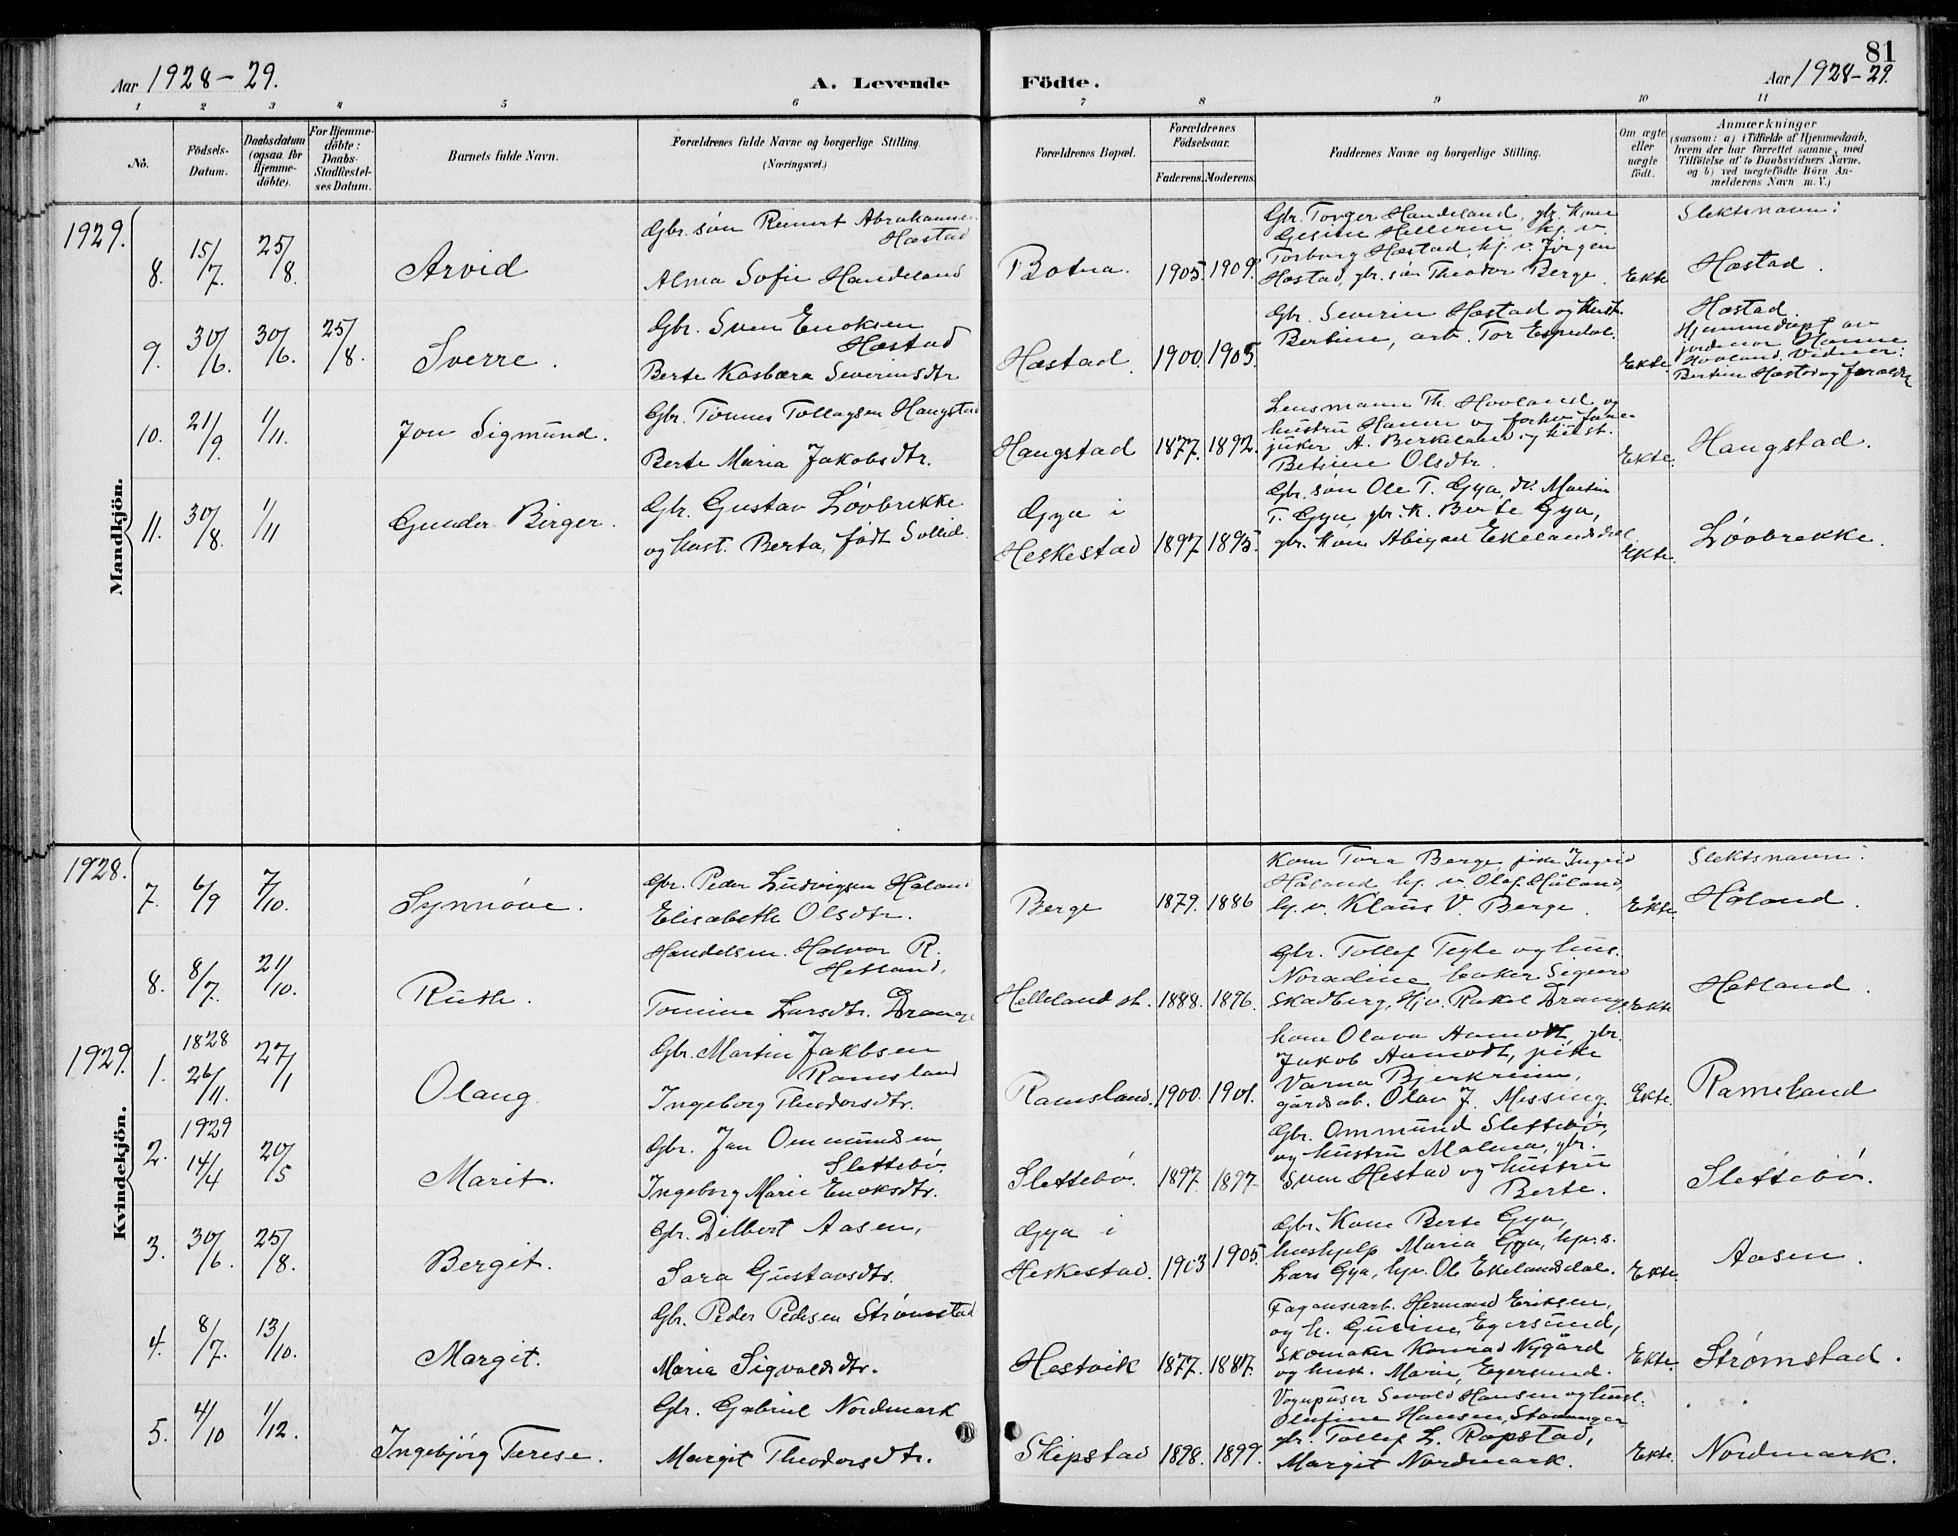 81
Aar 1928-29.
A. Levende Fødte.
Aar 1928-29.
1 2 3 4 5 6 7 8 9 10 11
No.
Födsels-Datum.
Daabsdatum (ogsaa for Hjemme-döbte).
For Hjemme-döbte: Daabs-Stadfæstel-ses Datum.
Barnets fulde Navn.
Forældrenes fulde Navne og borgerlige Stilling.
(Næringsvei.)
Forældrenes Bopæl.
Forældrenes Födselsaar.
Faderens. Moderens.
Faddernes Navne og borgerlige Stilling.
Om ægte eller uægte födt.
Anmærkninger
(saasom: a) i Tilfælde af Hjemmedaab,
hvem der har forrettet samme, med
Tilföielse af to Daabsvidners Navne,
og b) ved uægtefödte Börn An-
melderens Navn m.V.)
Mandkjön.
1929.
8. 15/7. 25/8. Arvid
Gbr. søn Reinert Abrahamsen
Hæstad
Alma Sofie Handeland
Botna. 1905. 1909.
Gbr. Torger Handeland, gbr. kone
Gesine Helleren, hj. v.
Torborg Hæstad, hj. v. Jørgen
Hæstad, gbr. søn Theodor Berge.
Ekte
Slektsnavn:
Hæstad.
9. 30/6. 30/6. 25/8. Sverre.
Gbr. Sven Enoksen
Hæstad
Berte Kasbæra Severinsdtr
Hæstad. 1900. 1905.
Gbr. Severin Hæstad og hust.
Bertine, arb. Tor Espedal.
Ekte.
Hæstad.
Hjemmedøpt av
jordmor Hanne
Hovland. Vidner:
Bertine Hæstad og foreldre
10. 21/9. 1/11. Jon Sigmund.
Gbr. Tønnes Tollagsen Haugstad
Berte Maria Jakobsdtr.
Haugstad 1877. 1892.
Lensmann Th. Hovland og
hustru Hanne og forhv. fane-
junker A. Berkeland og hust.
Betsine Olsdtr.
Ekte.
Haugstad.
11. 30/8. 1/11 Gunder Birger.
Gbr. Gustav Løvbrekke
og hust. Berta, født Sollid.
Gya i
Heskestad 1897. 1895.
Gbr. søn Ole T. Gya, do. Martin
T. Gya, gbr. k. Berte Gya,
gbr. kone Abigael Ekelandsdal
Ekte.
Løvbrekke.
Kvindekjön.
1928.
7. 6/9 7/10. Synnøve.
Gbr. Peder Ludvigsen Håland
Elisabeth Olsdtr.
Berge 1879. 1886
Kone Tora Berge, pike Ingrid
Håland, hj. v. Olaf Håland,
hj. v. Klaus V. Berge.
Ekte.
Slektsnavn:
Håland.
8. 8/7. 21/10. Ruth.
Handelsm. Halvor R.
Hetland,
Tomine Larsdtr. Drange
Helleland st. 1888. 1896.
Gbr. Tollef Tegle og hus.
Noradine, baker Sigurd
Skadberg, Hj.v. Rakel Drange
Ekte
Hetland.
1929.
1. 1828 26/11. 27/1 Olaug
Gbr. Martin Jakobsen
Ramsland
Ingeborg Theodorsdtr.
Ramsland. 1900. 1901.
kone Olava Aamodt, gbr.
Jakob Aamodt, pike
Varna Bjerkreim,
gårdsarb. Olav J. Messing.
Ekte.
Ramsland
2. 1929 14/4 20/5 Marit.
Gbr. Jan Ommundsen
Slettebø.
Ingeborg Marie Enoksdtr.
Slettebø. 1897. 1897.
Gbr. Ommund Slettebø,
og hustru Malena, gbr.
Sven Hestad og hustru
Berte.
Slettebø.
3. 30/6. 25/8. Bergit.
Gbr. Delbert Aasen,
Sara Gustavsdtr.
Gya i
Heskestad. 1903 1905.
Gbr. Kone Berte Gya,
hushjelp Maria Gya, hj.v.
Lars Gya, hj.v. Ole Ekelandsdal.
Ekte.
Aasen.
4. 8/7. 13/10. Margit.
Gbr. Peder Pedersen Strømstad
Maria Sigvaldsdtr.
Hestvik 1877. 1887.
Fayansearb. Hermand Eriksen,
og h. Gurine, Egersund,
Skomaker Konrad Nygård
og hust. Marie, Egersund.
Ekte.
Strømstad.
5. 4/10 1/12. Ingebjørg Terese.
Gbr. Gabriel Nordmark
Margit Theodorsdtr.
Skipstad 1898. 1899.
Vognpusser Sevald Hansen og hust.
Olufine Hansen, Stavanger
gbr. Tollef L. Rapstad,
Margit Nordmark.
Ekte.
Nordmark.